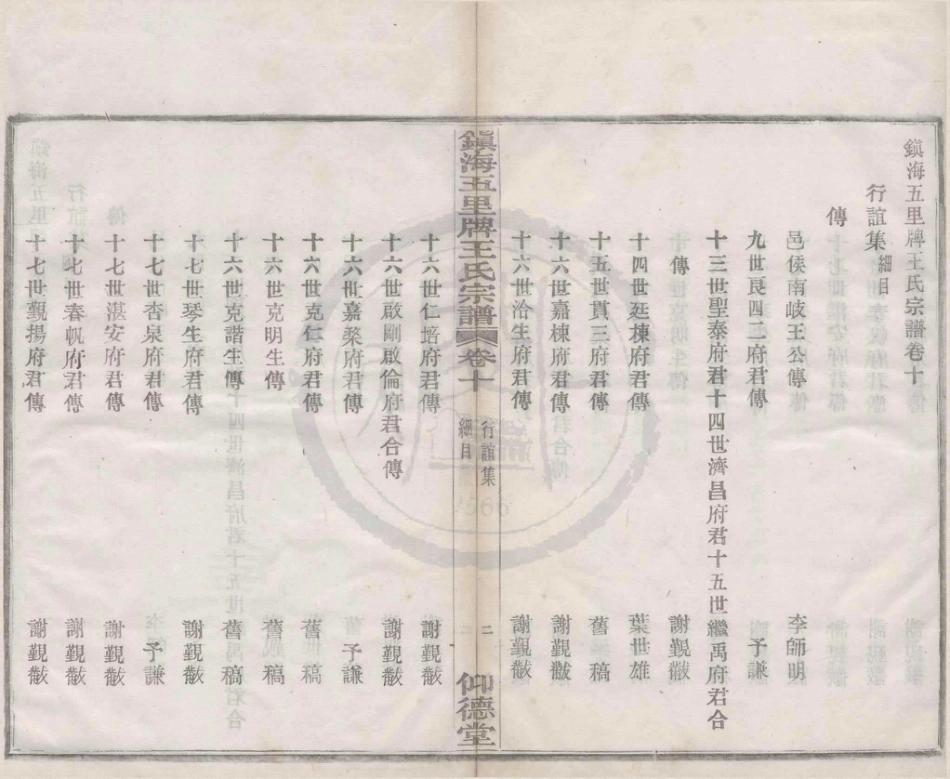 鎮海五里牌王氏宗譜卷十
行誼集細目
傳
邑侯南岐王公傳 李師明
九世良四二府君傳 予謙
十三世聖泰府君十四世濟昌府君十五世繼禹府君合
傳 謝覲黻
十四世廷棟府君傳 葉世雄
十五世貫三府君傳 舊稿
十六世嘉棟府君傳 謝覲黻
十六世洽生府君傳 謝覲黻
鎮海五里牌王氏宗譜 卷十 行誼集 細目 二 一 仰德堂
十六世仁培府君傳 謝覲黻
十六世啟剛啟倫府君合傳 謝覲黻
十六世嘉楘府君傳 予謙
十六世克仁府君傳 舊稿
十六世克明生傳 舊稿
十六世克諧生傳 舊稿
十七世琴生府君傳 謝覲黻
十七世杏泉府君傳 予謙
十七世湛安府君傳 謝覲黻
十七世春帆府君傳 謝覲黻
十七世覲揚府君傳 謝覲黻